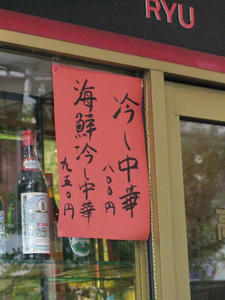 RYU
冷し中華
八〇〇円
海鮮冷し中華
九五〇円